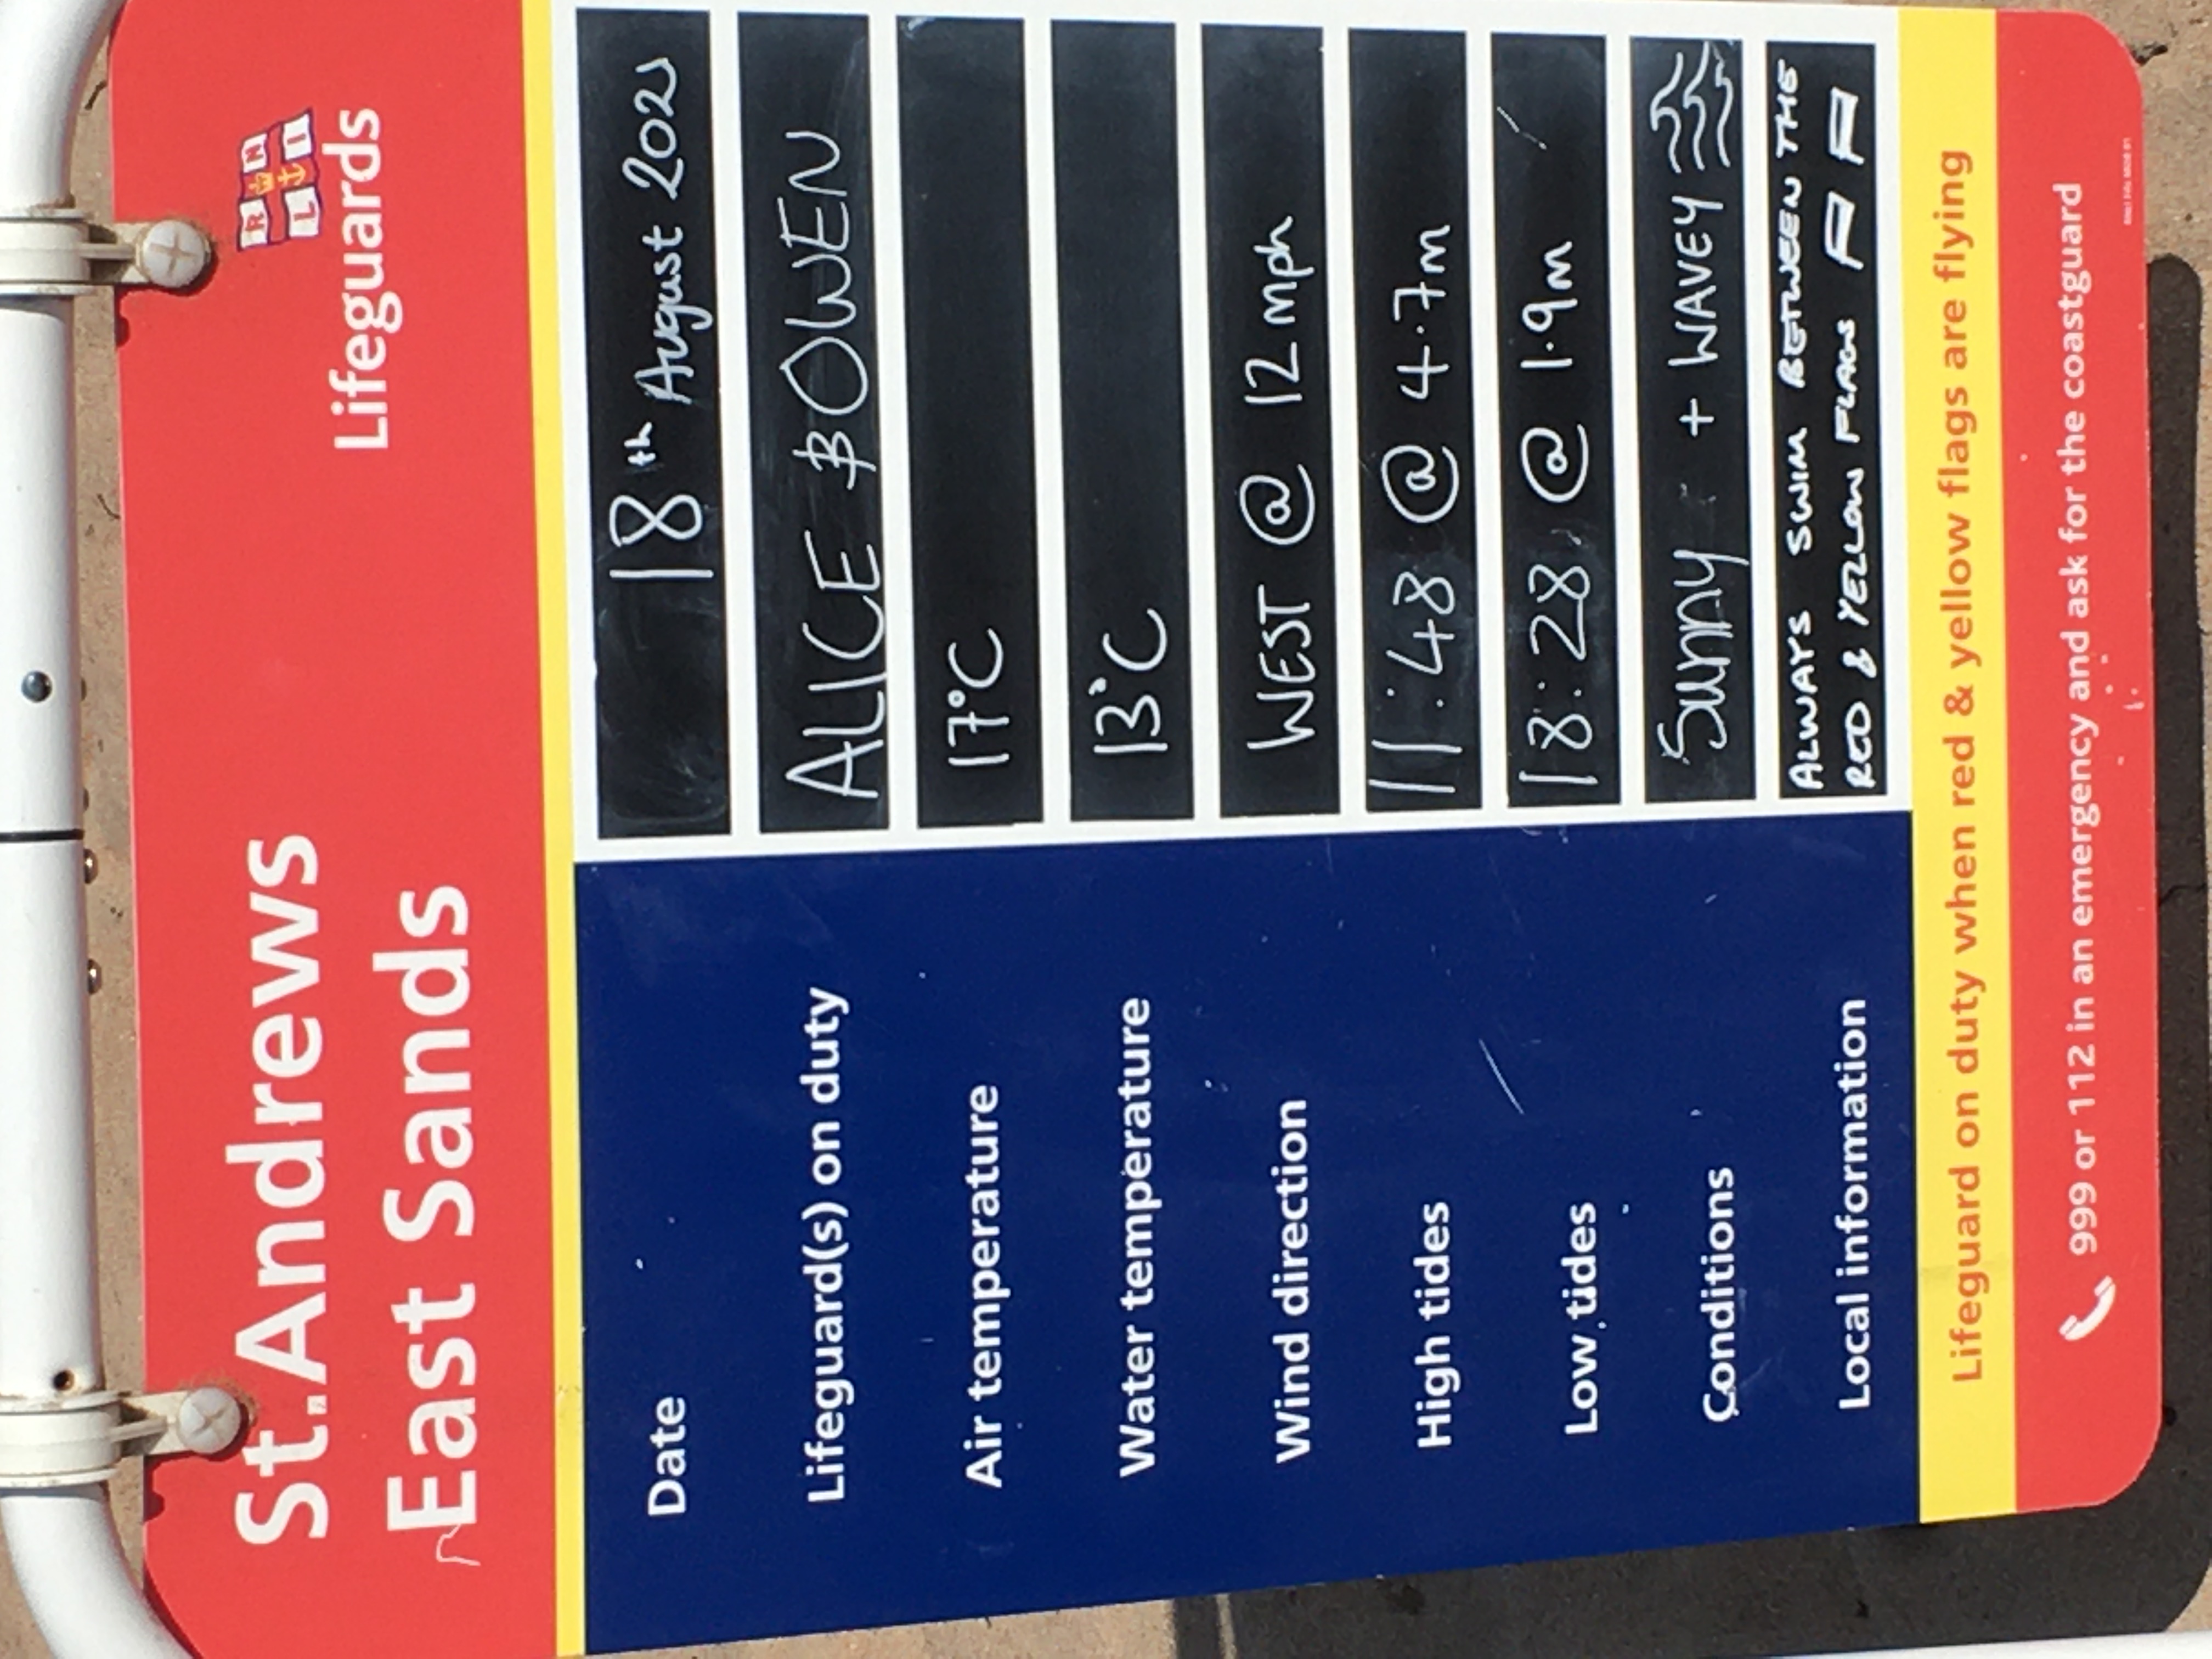 St.Andrews
East Sands
R N
L I
Lifeguards
Date 18th August 2021
Lifeguard(s) on duty ALICE & OWEN
Air temperature 17°C
Water temperature 13°C
Wind direction WEST @ 12 mph
High tides 11:48 @ 4.7m
Low tides 18:28 @ 1.9m
Conditions Sunny + WAVEY
Local information ALWAYS SWIM BETWEEN THE
RED & YELLOW FLAGS
Lifeguard on duty when red & yellow flags are flying
999 or 112 in an emergency and ask for the coastguard